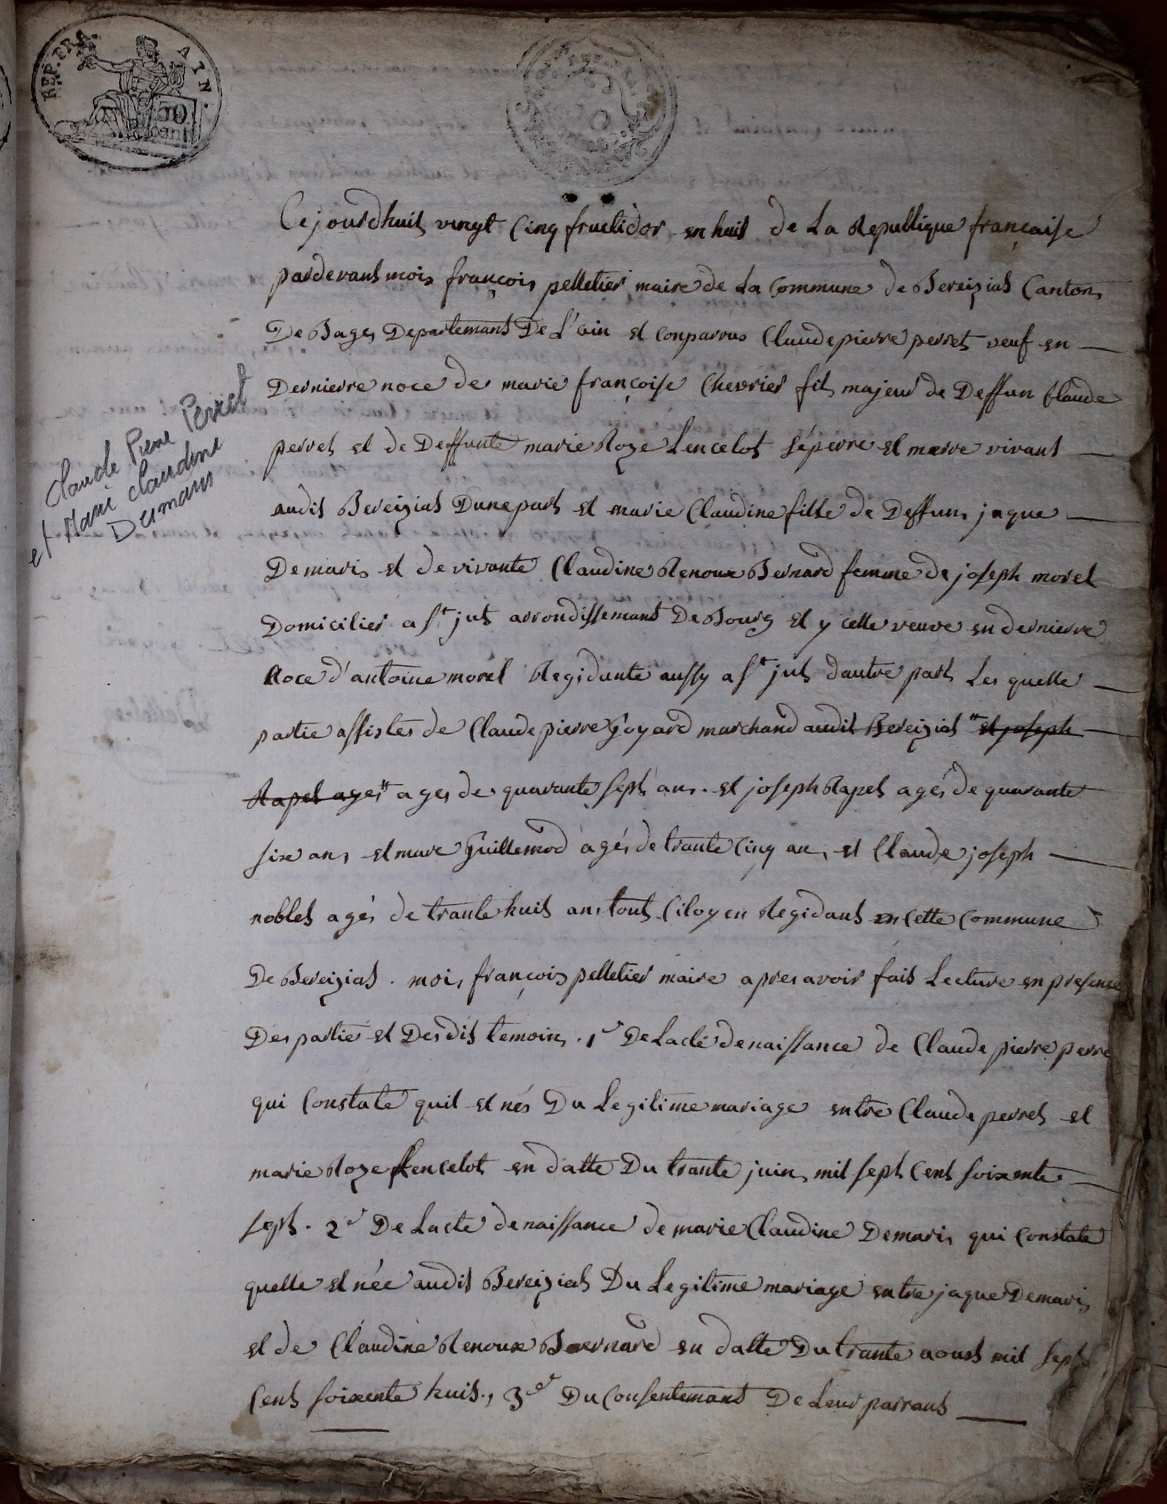 REP. FRA. AIN.
Claude Pierre Perret
et Marie Claudine
Demaris
Cejourdhuit vingt Cinq fructidor en huit de La Republique française
pardevant mois françois pelletier maire de La Commune de Bereiziat Canton
De Bages Departemant De L'ain et Conparrus Claudepierre perret veuf en
Dernierre noce de marie françoise Chevrier fils majeur de Deffun Claude
perret et de Deffunte marie Roze Lencelot sépeere et merre vivant
audit Bereiziat Dunepart et marie Claudine fille de Deffun jaque
Demaris et de vivante Claudine Renoux Bernard femme de joseph morel
Domicilier a St jut arrondissemant De Bourg et y celle veuve en dernierre
Noce d'antoine morel Regidante aussy a St jut dautre part Les quelle
partie assistes de Claudepierre Goyard marchand audit Bereiziat et joseph
Rapet ages ages de quarante sept ans. et joseph Rapet agés de quarante
six ans et marc Guillemod agés de trante Cinq an, et Claude joseph
noblet agés de trante huit ans tout Citoyen Regidant en Cette Commune
De Bereiziat. moi, françois pelletier maire apres avoir fait Lecture en presence
Des partie et Desdit temoins. 1er De Lacte denaissance de Claude pierre perre
qui Constate quil et nés Du Legitime mariage entre Claude perret et
marie Roze Lencelot en datte Du trante juin mil sept Cent soixente
sept. 2d De Lacte denaissance de marie Claudine Demaris qui Constate
quelle et née audit Bereiziat Du Legitime mariage entre jaque Demaris
et de Claudine Renoux Bernard en datte Du trante aoust mil sept
Cent soixente huit., 3e Du Consentemant De Leur parrant